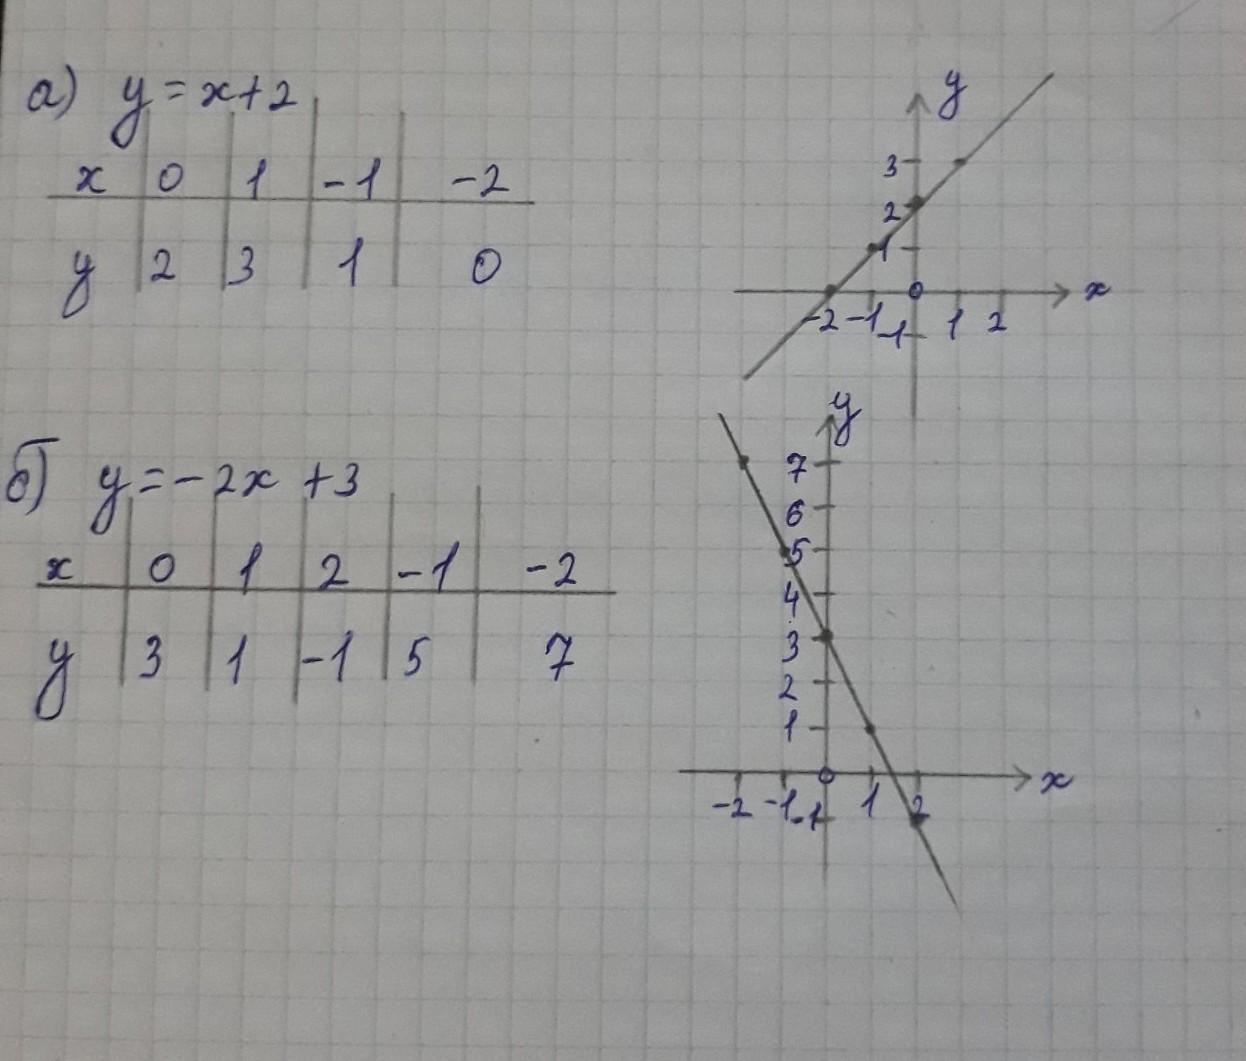 а) y = x+2
x 0 1 -1 -2
y 2 3 1 0
y
3
2
1
0 x
-2 -1 1 2
-1
б) y = -2x +3
x 0 1 2 -1 -2
y 3 1 -1 5 7
y
7
6
5
4
3
2
1
0 x
-2 -1 1 2
-1